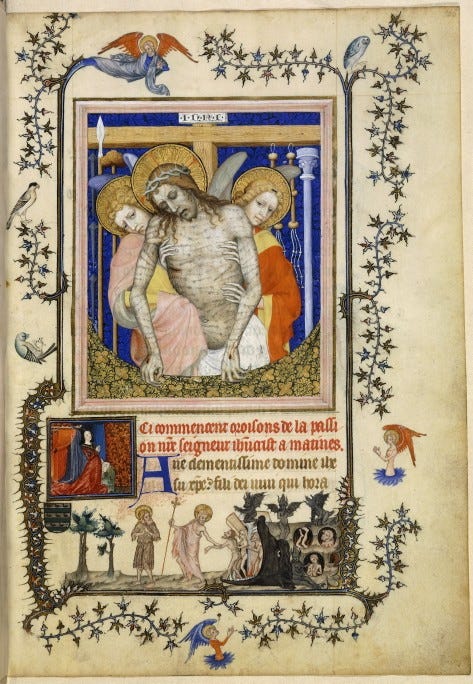 ·I·N·R·I·
Ci commencent oroisons de la passi
on nr̃e seigneur ihũcrist a matines.
Aue clementissime domine ihe
su xp̃e fili dei uiui qui hora